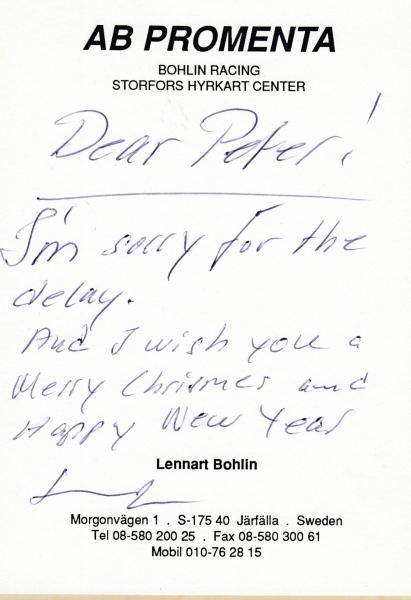 AB PROMENTA
BOHLIN RACING
STORFORS HYRKART CENTER
Dear Peter!
I'm sorry for the
delay.
And I wish you a
Merry Chrismes and
Happy New Year
Lennart Bohlin
Morgonvägen 1 . S-175 40 Järfälla . Sweden
Tel 08-580 200 25 . Fax 08-580 300 61
Mobil 010-76 28 15